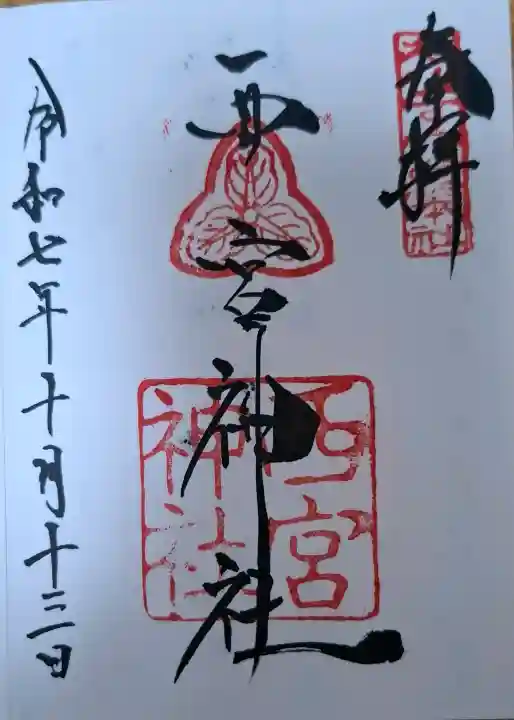 奉拝
西宮神社
西宮
神社
令和七年十月十三日